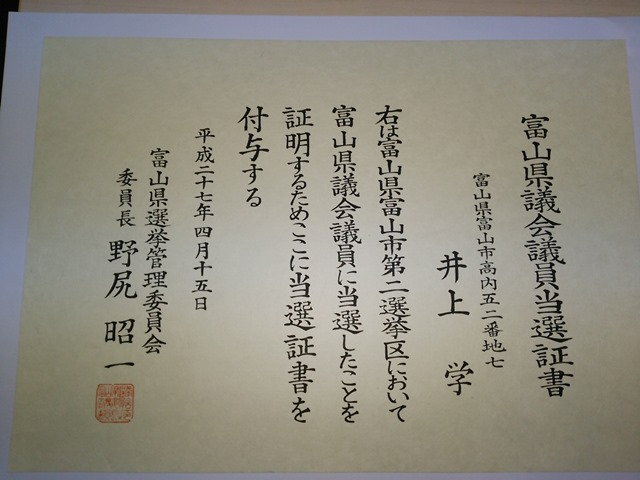 富山県議会議員当選証書
富山県富山市高内五二番地七
井上 学
右は富山県富山市第二選挙区において
富山県議会議員に当選したことを
証明するためここに当選証書を
付与する
平成二十七年四月十五日
富山県選挙管理委員会
委員長 野尻 昭一